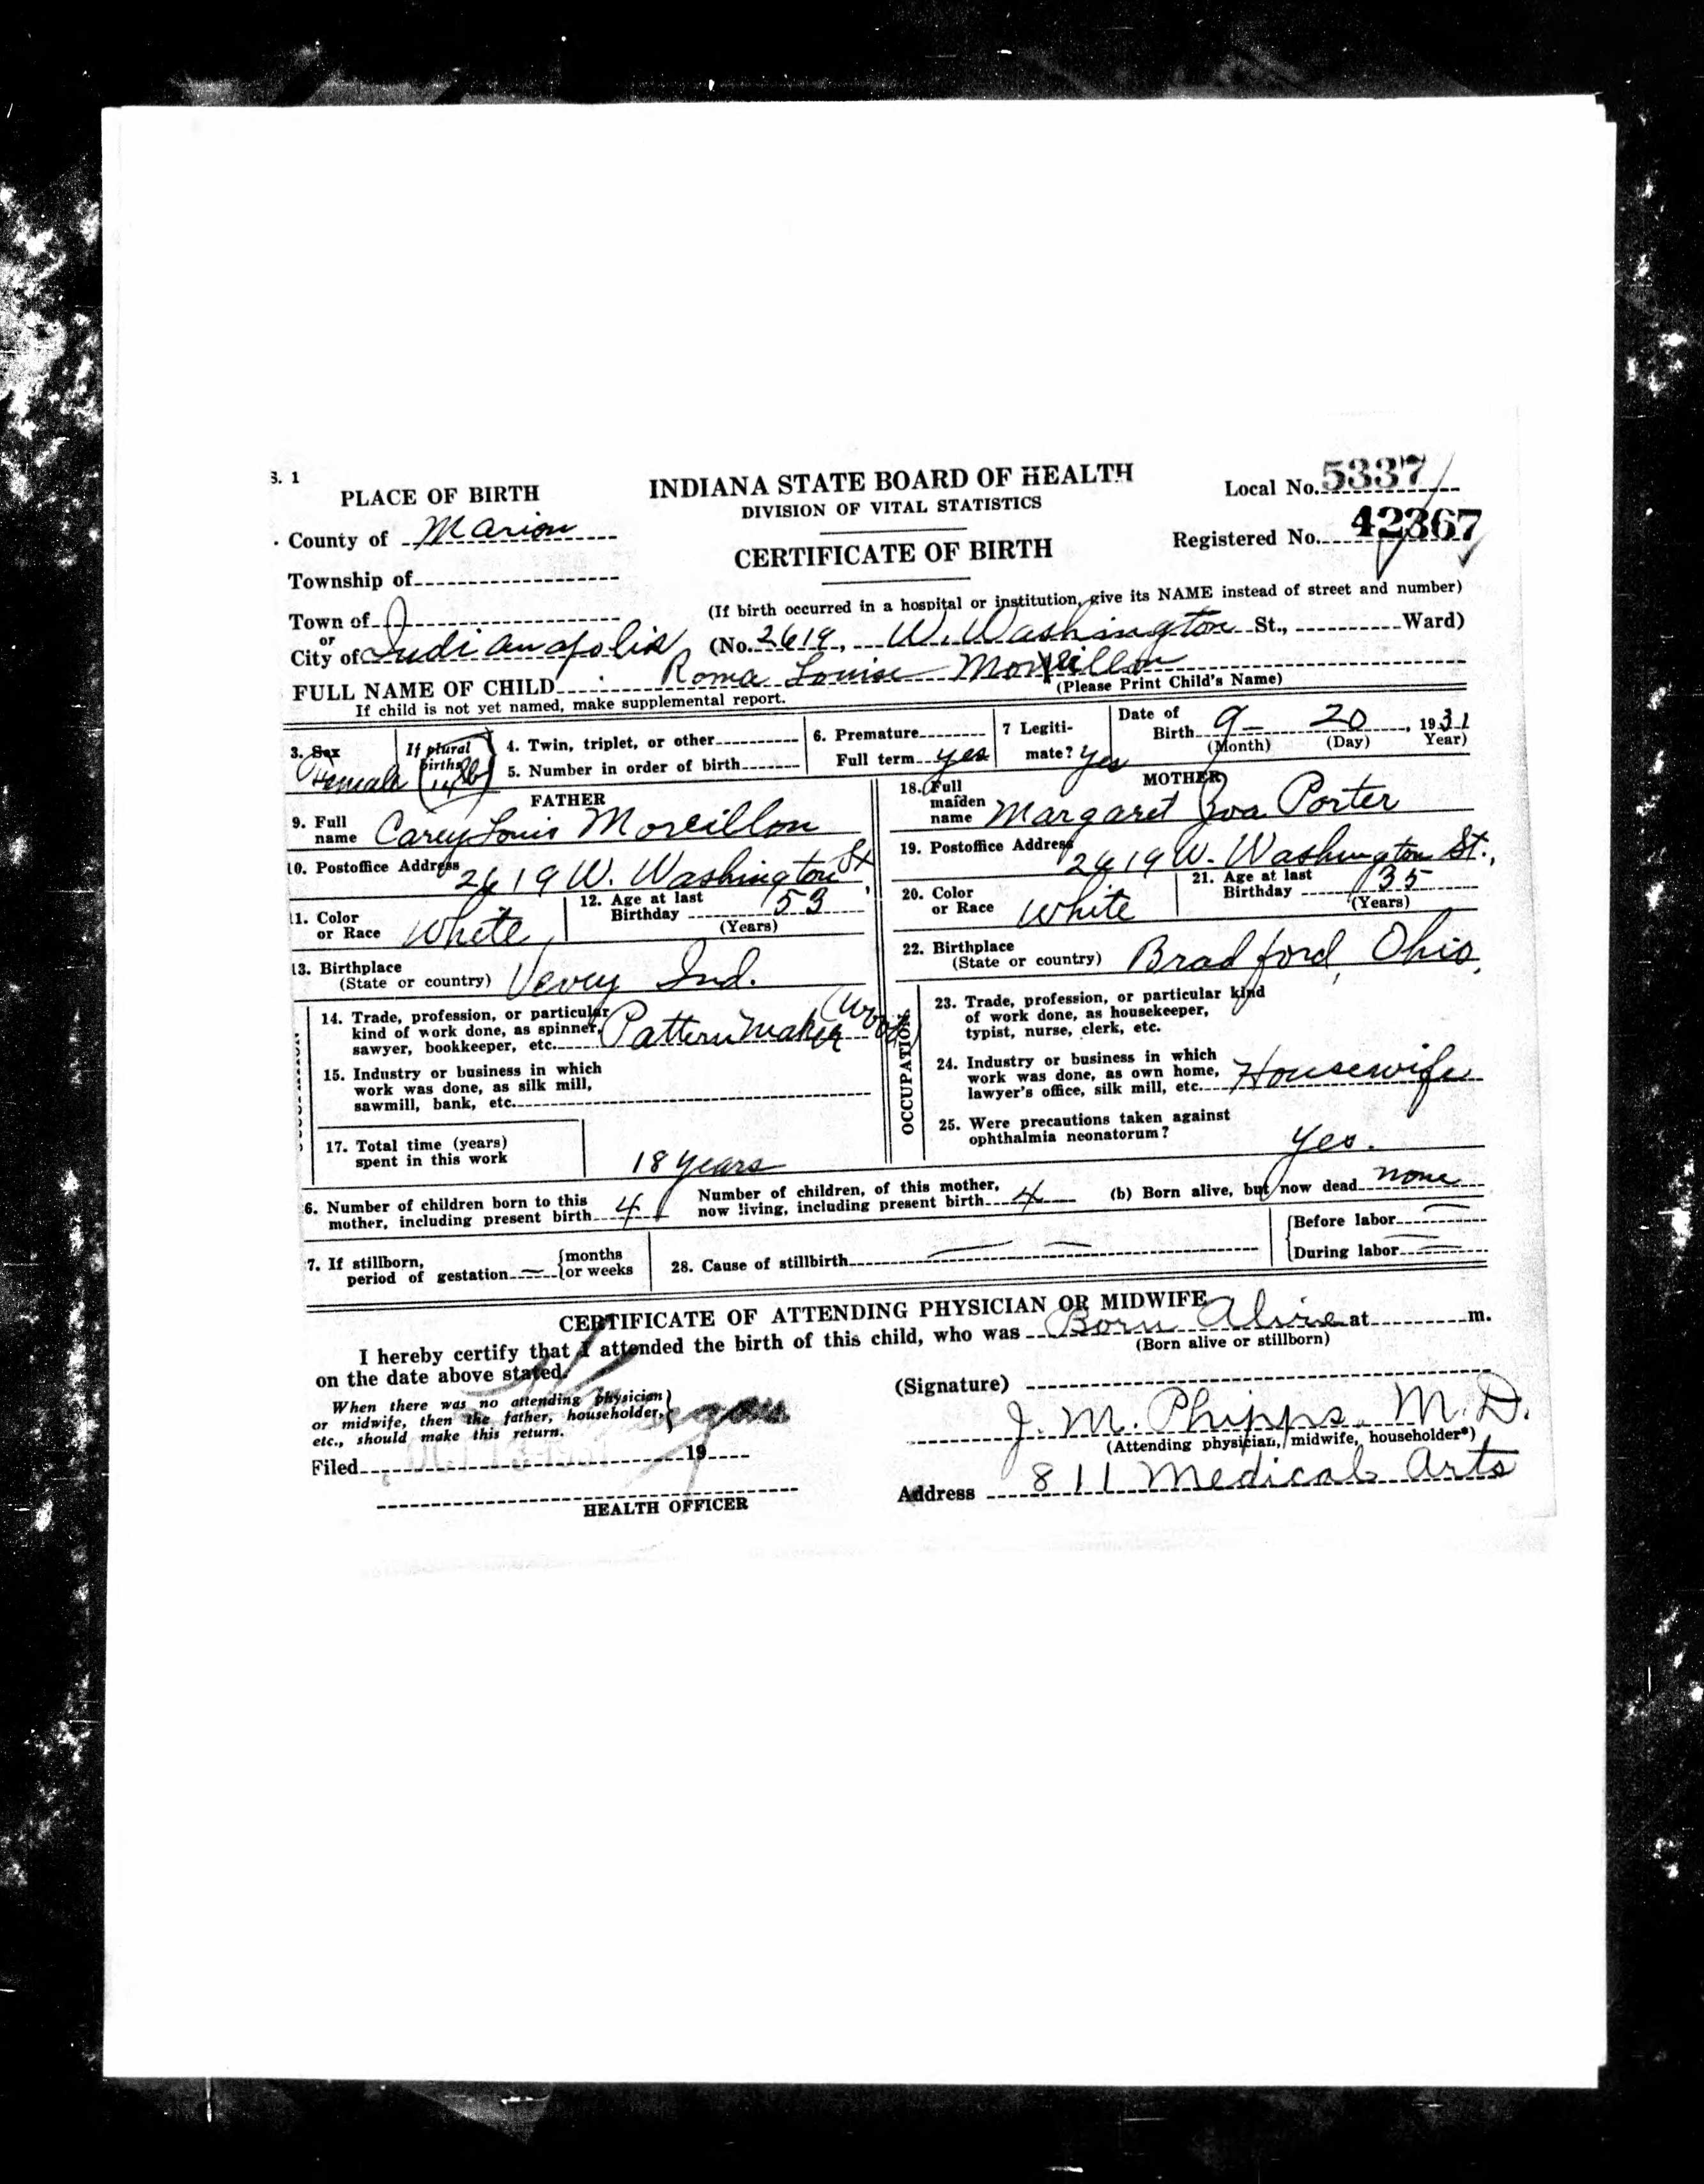 S. 1
PLACE OF BIRTH
INDIANA STATE BOARD OF HEALTH
DIVISION OF VITAL STATISTICS
Local No. 5337
County of Marion
CERTIFICATE OF BIRTH
Registered No. 42367
Township of
Town of
(If birth occurred in a hospital or institution, give its NAME instead of street and number)
or
City of Indianapolis (No. 2619, W. Washington St., Ward)
FULL NAME OF CHILD Roma Louise Moreillon
(Please Print Child's Name)
If child is not yet named, make supplemental report.
3. Sex
Female
If plural births
4. Twin, triplet, or other
5. Number in order of birth
6. Premature
Full term yes
7 Legiti-
mate? Yes
Date of
Birth 9 - 20, 1931
(Month) (Day) Year)
FATHER
9. Full
name Carey Louis Moreillon
10. Postoffice Address 2619 W. Washington St
11. Color
or Race White
12. Age at last
Birthday 53
(Years)
13. Birthplace
(State or country) Vevey Ind.
14. Trade, profession, or particular
kind of work done, as spinner,
sawyer, bookkeeper, etc. Pattern Maker (Wood)
15. Industry or business in which
work was done, as silk mill,
sawmill, bank, etc.
17. Total time (years)
spent in this work 18 years
MOTHER
18. Full
maiden
name Margaret Iva Porter
19. Postoffice Address 2619 W. Washington St.,
20. Color
or Race White
21. Age at last
Birthday 35
(Years)
22. Birthplace
(State or country) Bradford, Ohio,
OCCUPATION
23. Trade, profession, or particular kind
of work done, as housekeeper,
typist, nurse, clerk, etc.
24. Industry or business in which
work was done, as own home,
lawyer's office, silk mill, etc. Housewife
25. Were precautions taken against
ophthalmia neonatorum? Yes.
6. Number of children born to this
mother, including present birth 4
Number of children, of this mother,
now living, including present birth 4
(b) Born alive, but now dead none
7. If stillborn,
period of gestation — {months
or weeks
28. Cause of stillbirth — —
{Before labor —
During labor —
CERTIFICATE OF ATTENDING PHYSICIAN OR MIDWIFE
I hereby certify that I attended the birth of this child, who was Born Alive at m.
(Born alive or stillborn)
on the date above stated.
When there was no attending physician
or midwife, then the father, householder,
etc., should make this return.
(Signature)
J. M. Phipps. M.D.
(Attending physician, midwife, householder*)
Filed 19
HEALTH OFFICER
Address 811 Medical Arts